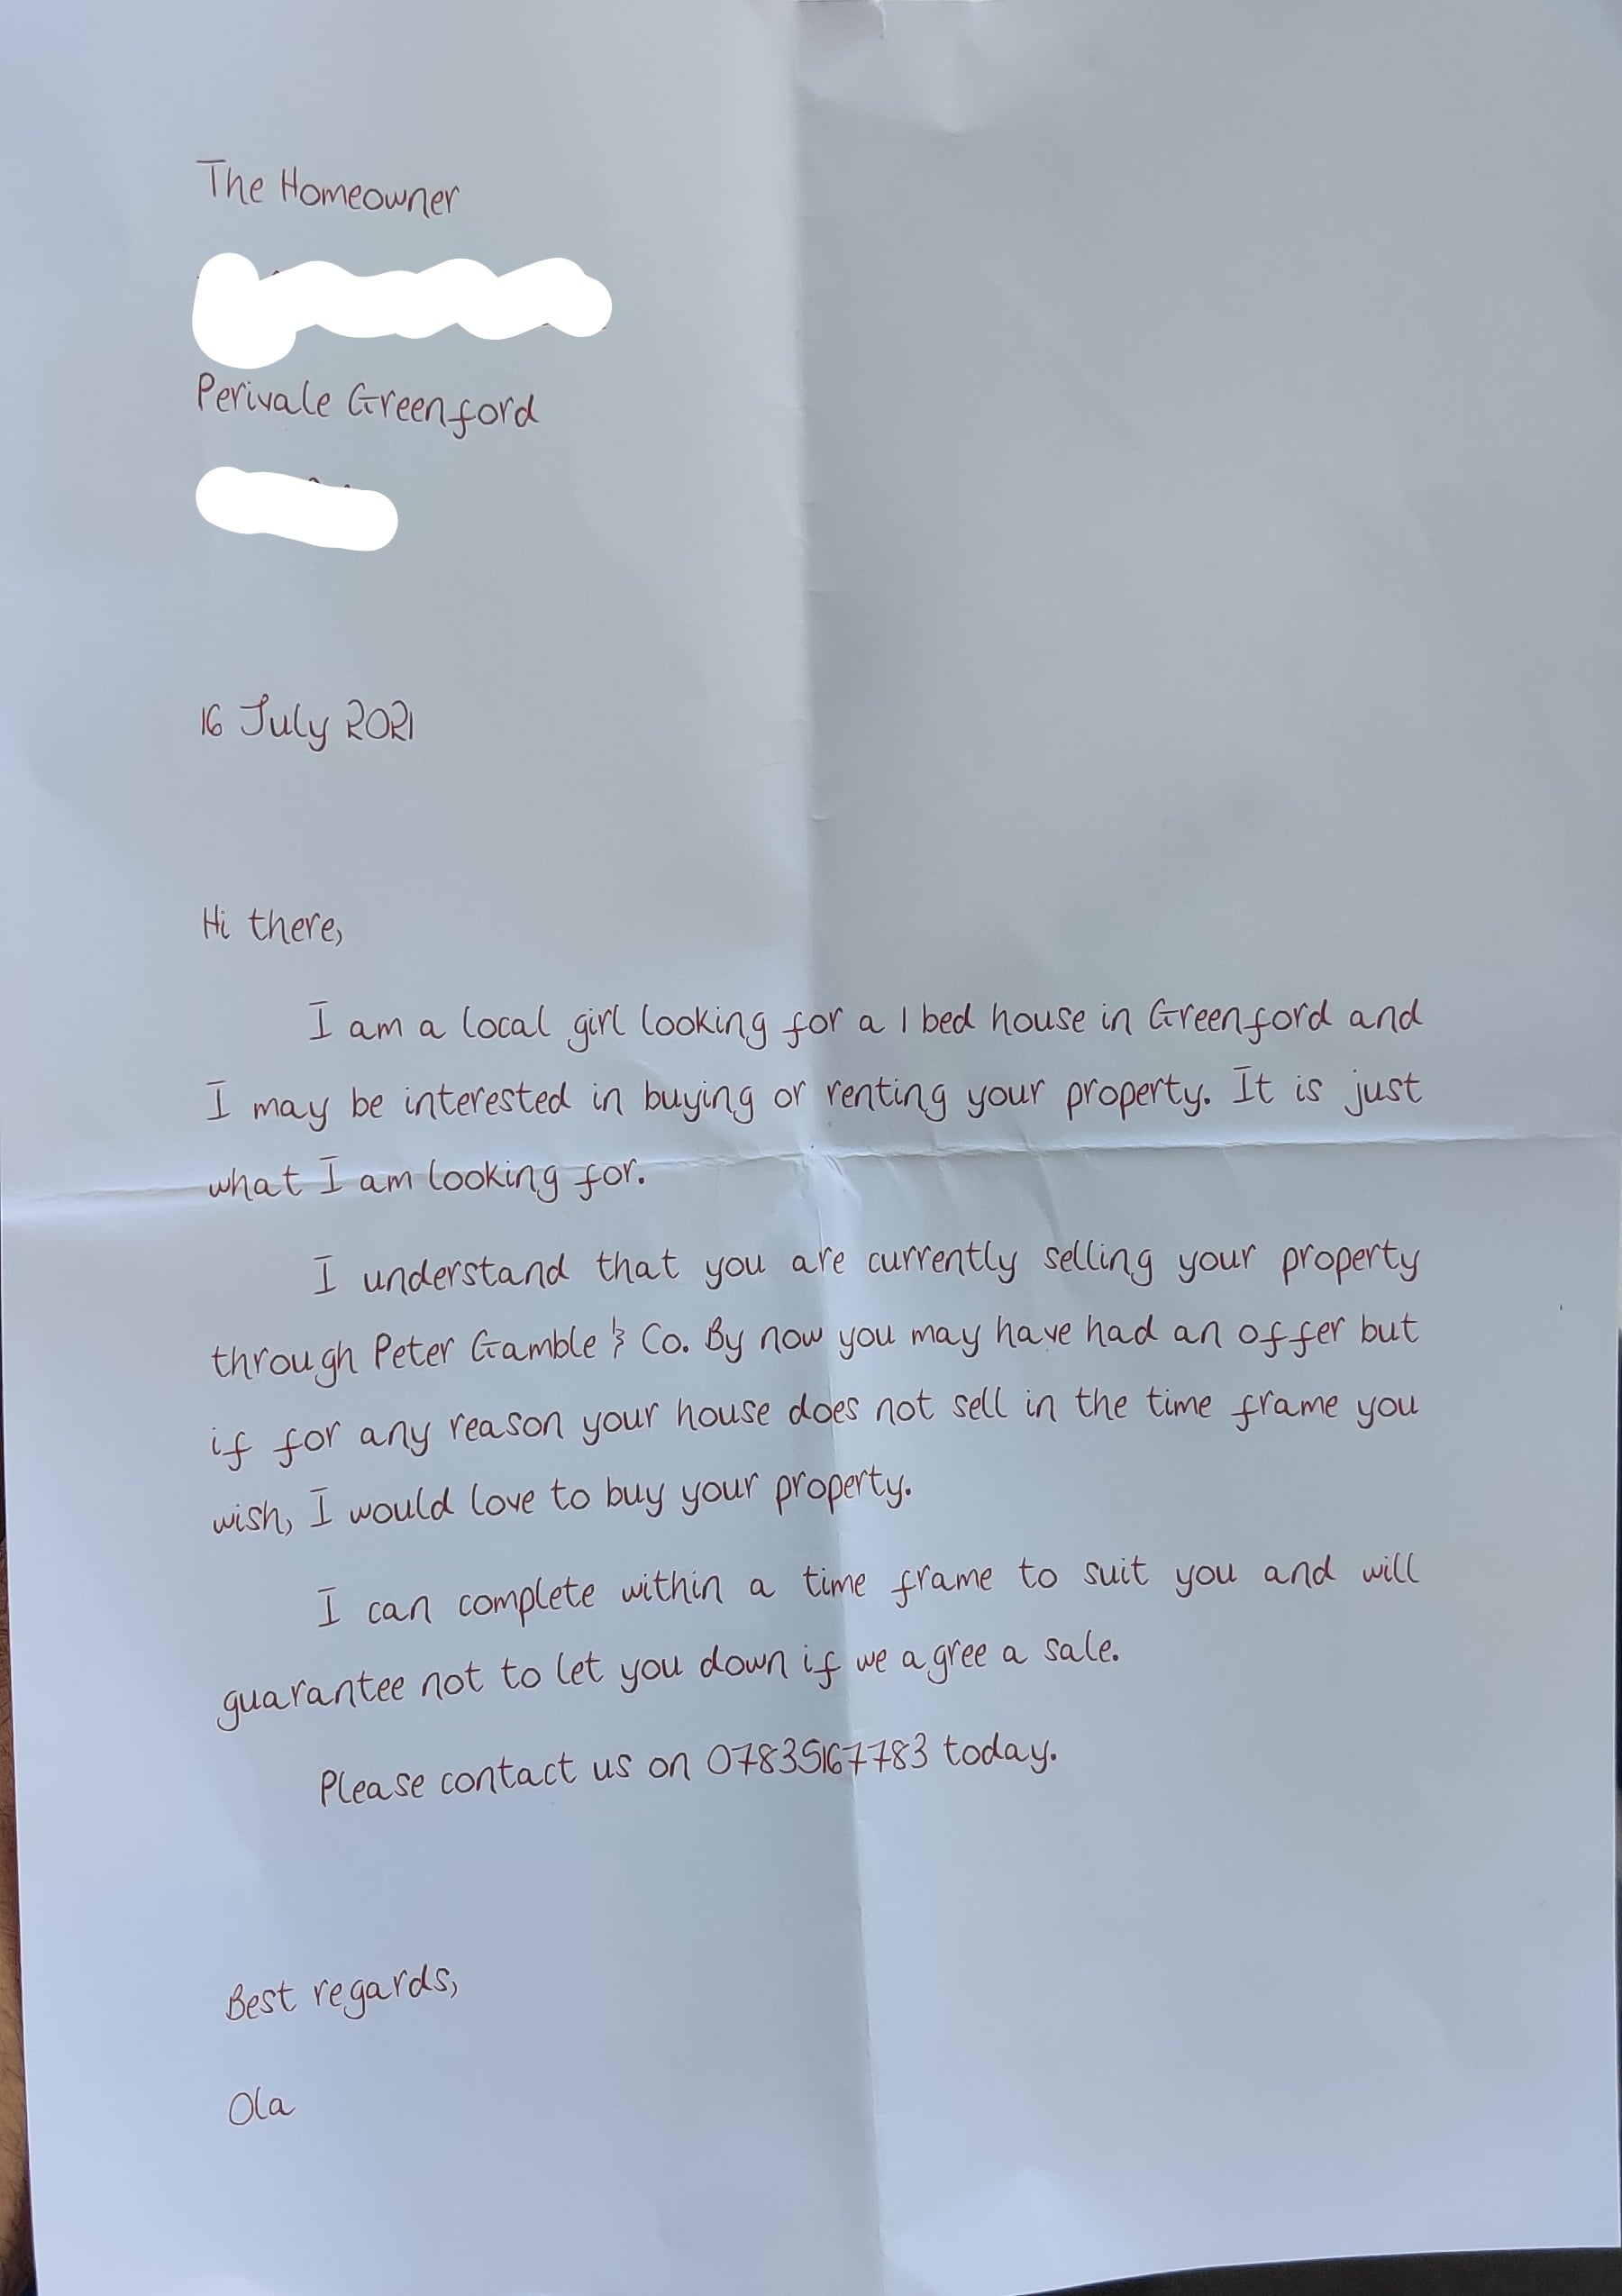 The Homeowner
Perivale Greenford
16 July 2021
Hi there,
I am a local girl looking for a 1 bed house in Greenford and
I may be interested in buying or renting your property. It is just
what I am looking for.
I understand that you are currently selling your property
through Peter Gamble & Co. By now you may have had an offer but
if for any reason your house does not sell in the time frame you
wish, I would love to buy your property.
I can complete within a time frame to suit you and will
guarantee not to let you down if we agree a sale.
Please contact us on 07835167783 today.
Best regards,
Ola